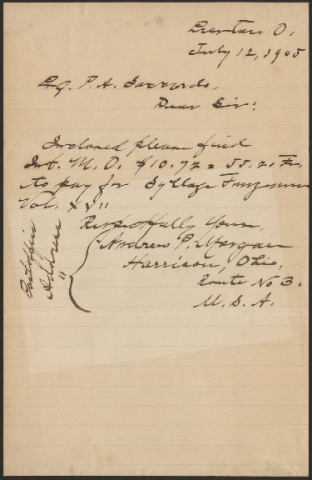 Preston O.
July 12, 1905
P. A. Saccardo,
Dear Sir:
Inclosed please find
Int. M. O. $10.72 = 55.20 Fr.
to pay for Sylloge Fungorum
Vol. XVII
Respectfully Yours,
Andrew P. Morgan
Harrison, Ohio,
Route No 3.
U. S. A.
Postoffice
Address
"